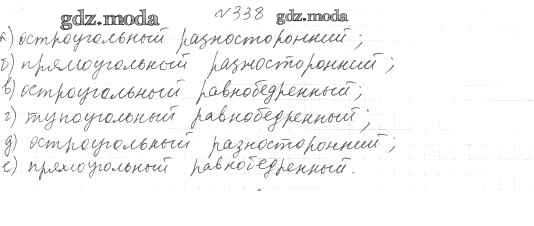 gdz.moda №338 gdz.moda
а) остроугольный разносторонний;
б) прямоугольный разносторонний;
в) остроугольный равнобедренный;
г) тупоугольный равнобедренный;
д) остроугольный разносторонний;
е) прямоугольный равнобедренный.